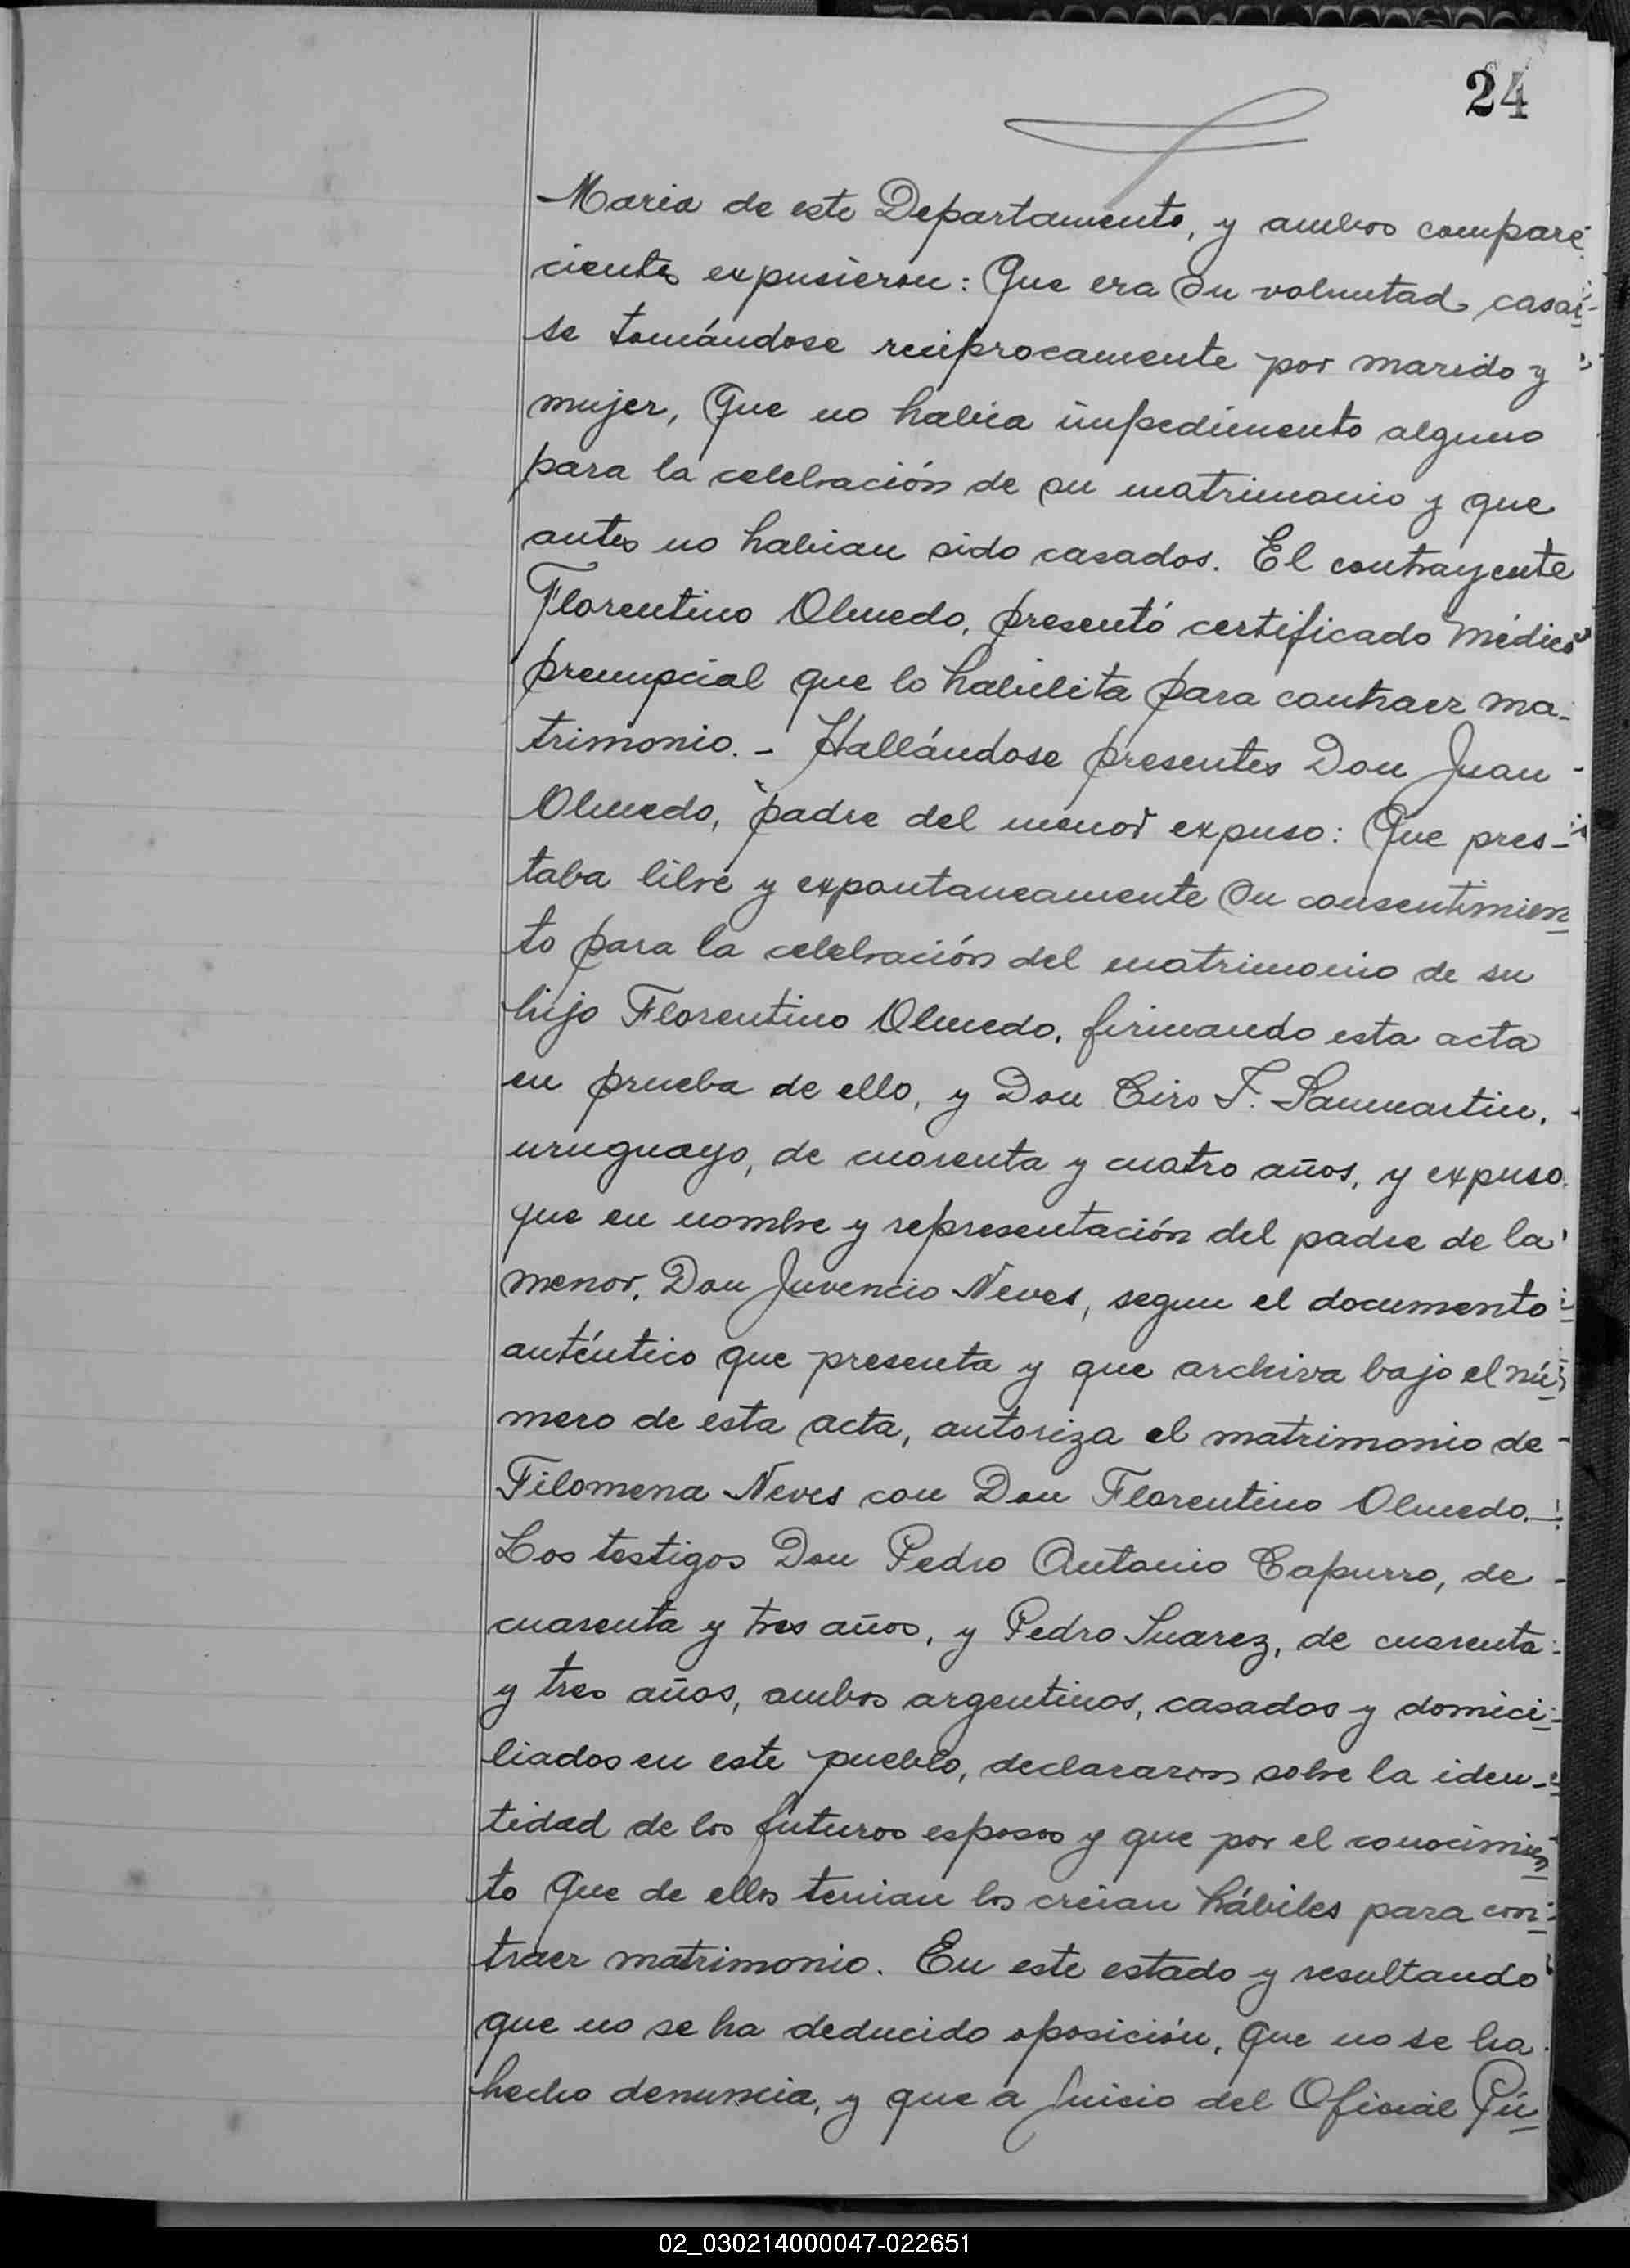 24
Maria de este Departamento, y ambos compare
cientes expusieron: Que era su voluntad casar-
se tomándose reciprocamente por marido y
mujer, Que no habia impedimento alguno
para la celebración de su matrimonio y que
antes no habian sido casados. El contrayente
Florentino Olmedo, presentó certificado médico
prenupcial que lo habilita para contraer ma-
trimonio. - Hallándose presentes Don Juan -
Olmedo, padre del menor expuso: Que pres-
taba libre y expontaneamente su consentimien
to para la celebración del matrimonio de su
hijo Florentino Olmedo, firmando esta acta
en prueba de ello, y Don Ciro F. Sanmartin,
uruguayo, de cuarenta y cuatro años, y expuso
que en nombre y representación del padre de la
menor, Don Juvencio Neves, segun el documento
auténtico que presenta y que archiva bajo el nú
mero de esta acta, autoriza el matrimonio de -
Filomena Neves con Don Florentino Olmedo. -
Los testigos Don Pedro Antonio Capurro, de -
cuarenta y tres años, y Pedro Suarez, de cuarenta
y tres años, ambos argentinos, casados y domici-
liados en este pueblo, declararon sobre la iden-
tidad de los futuros esposos y que por el conocimien
to que de ellos tenian los creian hábiles para con-
traer matrimonio. En este estado y resultando
que no se ha deducido oposición, que no se ha
hecho denuncia, y que a juicio del Oficial Pú
02_030214000047-022651